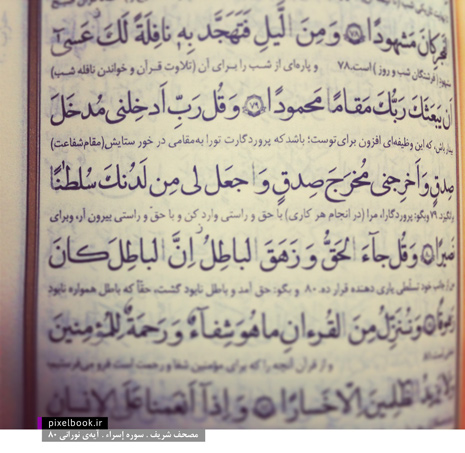 الفَجرِ كانَ مَشهودًا ﴿٧٨﴾ وَمِنَ الَّيلِ فَتَهَجَّد بِهِ نافِلَةً لَكَ عَسىٰ
فرشتگان شب و روز) است.٧٨ و پاره‌ای از شب را برای آن (تلاوت قرآن و خواندن نافله شب)
أَن يَبعَثَكَ رَبُّكَ مَقامًا مَحمودًا ﴿٧٩﴾ وَقُل رَبِّ أَدخِلني مُدخَلَ
بیدار باش، که این وظیفه‌ای افزون برای توست؛ باشد که پروردگارت تو را به‌مقامی در خور ستایش (مقام شفاعت)
صِدقٍ وَأَخرِجني مُخرَجَ صِدقٍ وَاجعَل لي مِن لَدُنكَ سُلطٰنًا
برانگیزد.٧٩ و بگو: پروردگارا، مرا (در انجام هر کاری) با حق و راستی وارد کن و با حق و راستی بیرون آر، و برای
نَصيرًا ﴿٨٠﴾ وَقُل جاءَ الحَقُّ وَزَهَقَ الباطِلُ إِنَّ الباطِلَ كانَ
من از جانب خود تسلّطی یاری دهنده قرار ده. ٨٠ و بگو: حق آمد و باطل نابود گشت، حقّاً که باطل همواره نابود
زَهوقًا ﴿٨١﴾ وَنُنَزِّلُ مِنَ القُرءانِ ما هُوَ شِفاءٌ وَرَحمَةٌ لِلمُؤمِنينَ
و از قرآن آنچه را که برای مؤمنین شفا و رحمت است فرو می‌فرستیم،
وَلا يَزيدُ الظّٰلِمينَ إِلّا خَسارًا ﴿٨٢﴾ وَإِذا أَنعَمنا عَلَى الإِنسانِ
pixelbook.ir
مصحف شریف . سوره إسراء . آیه‌ی نورانی ٨٠